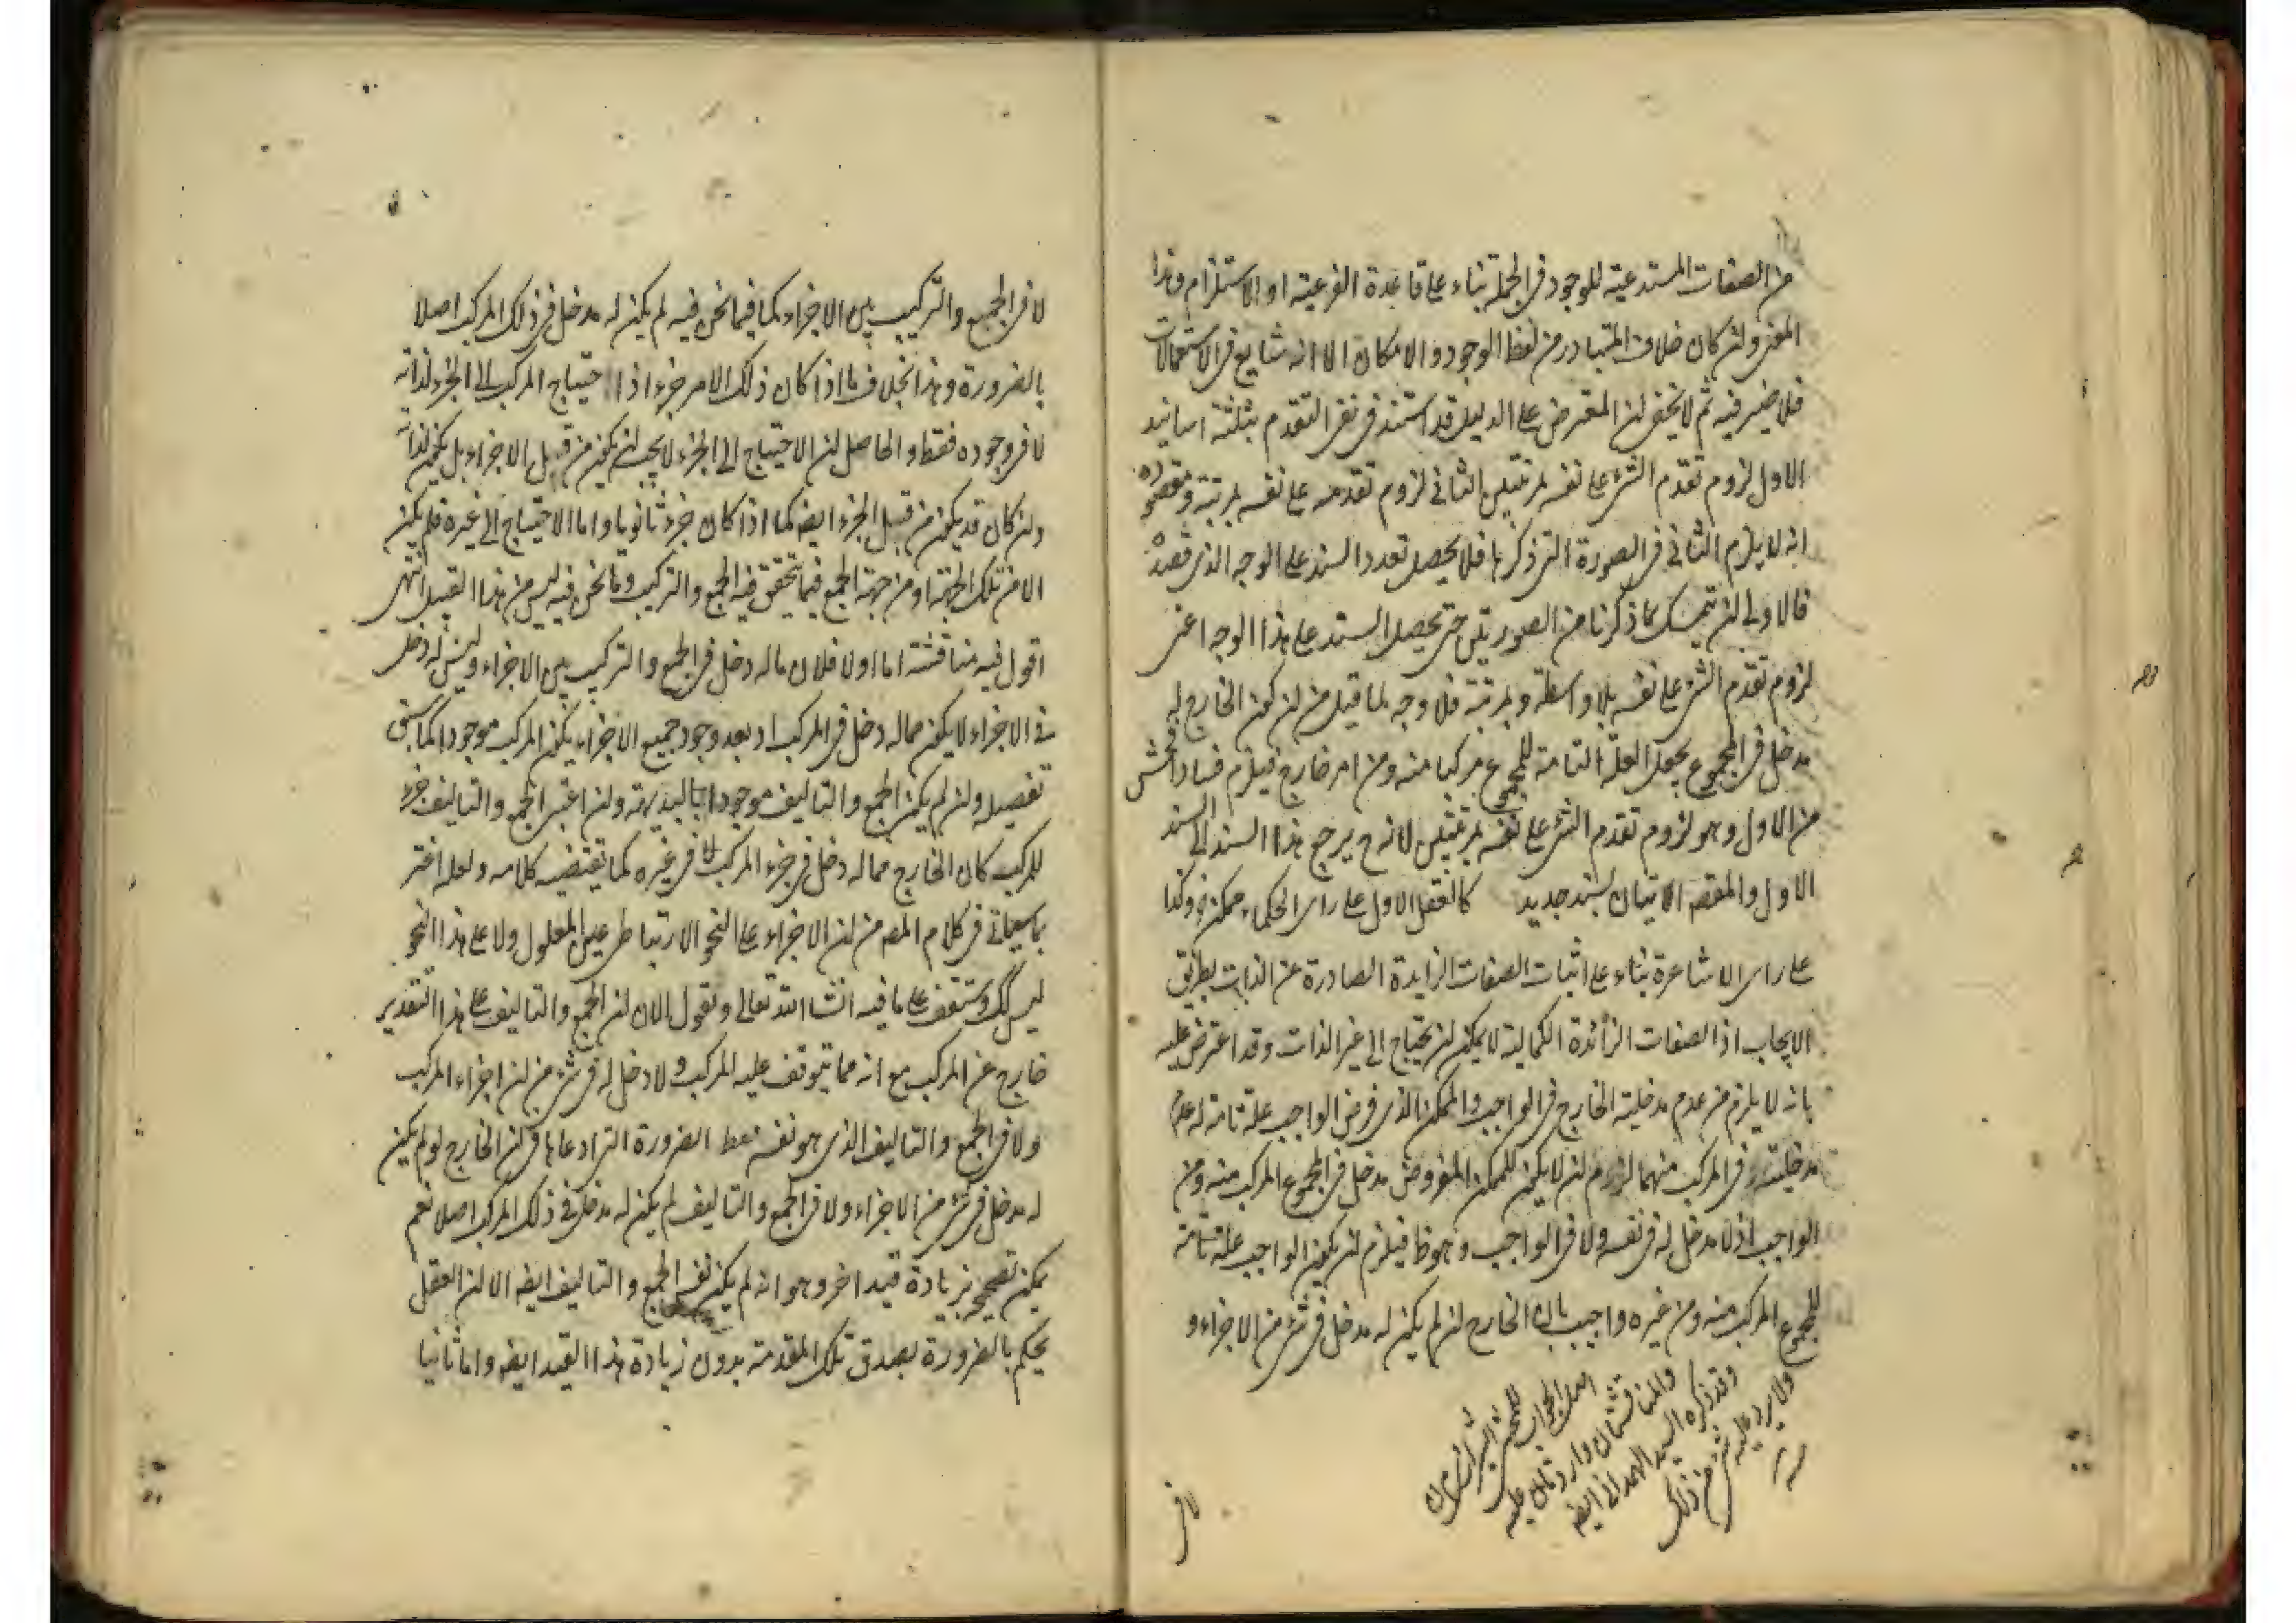 من الصفات المستدعية للوجود فى الجملة بناء على قاعدة الفرعية او الاستلزام وهذا
المعنى ولئن كان خلاف المتبادر من لفظ الوجود والامكان الا انه شايع فى الاستعمالات
فلا ضير فيه ثم لا يخفى ان المعترض على الدليل قد استند فى نفى التقدم بثلثة اسانيد
الاول لزوم تقدم الشئ على نفسه بمرتبتين الثانى لزوم تقدمه على نفسه بمرتبة ومقصوده
انه لا يلزم الثانى فى الصورة التى ذكرها فلا يحصل تعدد السند على الوجه الذى قصده
فالاولى ان يتمسك بما ذكرنا من الصورتين حتى يحصل السند على هذا الوجه اعنى
لزوم تقدم الشئ على نفسه بلا واسطة وبمرتبة فلا وجه لما قيل من ان كون الخارج له
مدخل فى المجموع يجعل العلة التامة للمجموع مركبا منه ومن امر خارج فيلزم فساد افحش
من الاول وهو لزوم تقدم الشئ على نفسه بمرتبتين لانه ح يرجع هذا السند الى السند
الاول والمقصد الاتيان بسند جديد كالعقل الاول على راى الحكماء ممكن وكذا
على راى الاشاعرة بناء على اثبات الصفات الزايدة الصادرة عن الذات بطريق
الايجاب اذ الصفات الزائدة الكمالية لا يمكن ان يحتاج الى غير الذات وقد اعترض عليه
بانه لا يلزم من عدم مدخلية الخارج فى الواجب والممكن الذى فرض الواجب علة تامة له عدم
مدخليته فى المركب منهما لزوم ان لا يكون للممكن المفروض مدخل فى المجموع المركب منه ومن
الواجب اذ لا مدخل له فى نفسه ولا فى الواجب وهو ظ فيلزم ان يكون الواجب علة تامة
للمجموع المركب منه ومن غيره واجيب بان الخارج ان لم يكن له مدخل فى شئ من الاجزاء و
اصل الجواب للمحقق الشريف
والمناقشتان واردتان عليه
وقد ذكره السيد الهمدانى ايضه
ولا يرد عليه شئ من ذلك
منه
لا فى
لا فى الجمع والتركيب بين الاجزاء كما فيما نحن فيه لم يكن له مدخل فى ذلك المركب اصلا
بالضرورة وهذا بخلاف ما اذا كان ذلك الامر جزء اذ احتياج المركب الى الجزء لذاته
لا فى وجوده فقط والحاصل ان الاحتياج الى الجزء لا يجب ان يكون من قبل الاجزاء بل يكون لذاته
ولئن كان قد يكون من قبل الجزء ايضه كما اذا كان جزء ثانويا واما الاحتياج الى غيره فلم يكن
الا من تلك الجهة او من جهة الجمع فيما يتحقق فيه الجمع والتركيب وما نحن فيه ليس من هذا القبيل انتهى
اقول فيه مناقشة اما اولا فلان ما له دخل فى الجمع والتركيب بين الاجزاء وليس له دخل
فى الاجزاء لا يكون مما له دخل فى المركب اذ بعد وجود جميع الاجزاء يكون المركب موجودا كما سبق
تفصيله ولئن لم يكن الجمع والتاليف موجودا بالبديهة ولئن اعتبر الجمع والتاليف جزء
للمركب كان الخارج مما له دخل فى جزء المركب لا فى غيره كما يقتضيه كلامه ولعله اغتر
بما سيجئ فى كلام المص من ان الاجزاء على النحو الارتباط عين المعلول ولا على هذا النحو
ليس كك وستقف على ما فيه انشاء الله تعالى ونقول الان ان الجمع والتاليف على هذا التقدير
خارج عن المركب مع انه مما يتوقف عليه المركب ولا دخل له فى شئ من اجزاء المركب
ولا فى الجمع والتاليف الذى هو نفسه الضرورة التى ادعاها فى ان الخارج لو لم يكن
له مدخل فى شئ من الاجزاء ولا فى الجمع والتاليف لم يكن له مدخل فى ذلك المركب اصلا نعم
يمكن تصحيحه بزيادة قيد اخر وهو انه لم يكن نفس الجمع والتاليف ايضه الا ان العقل
يحكم بالضرورة بصدق تلك المقدمة بدون زيادة هذا القيد ايضه واما ثانيا